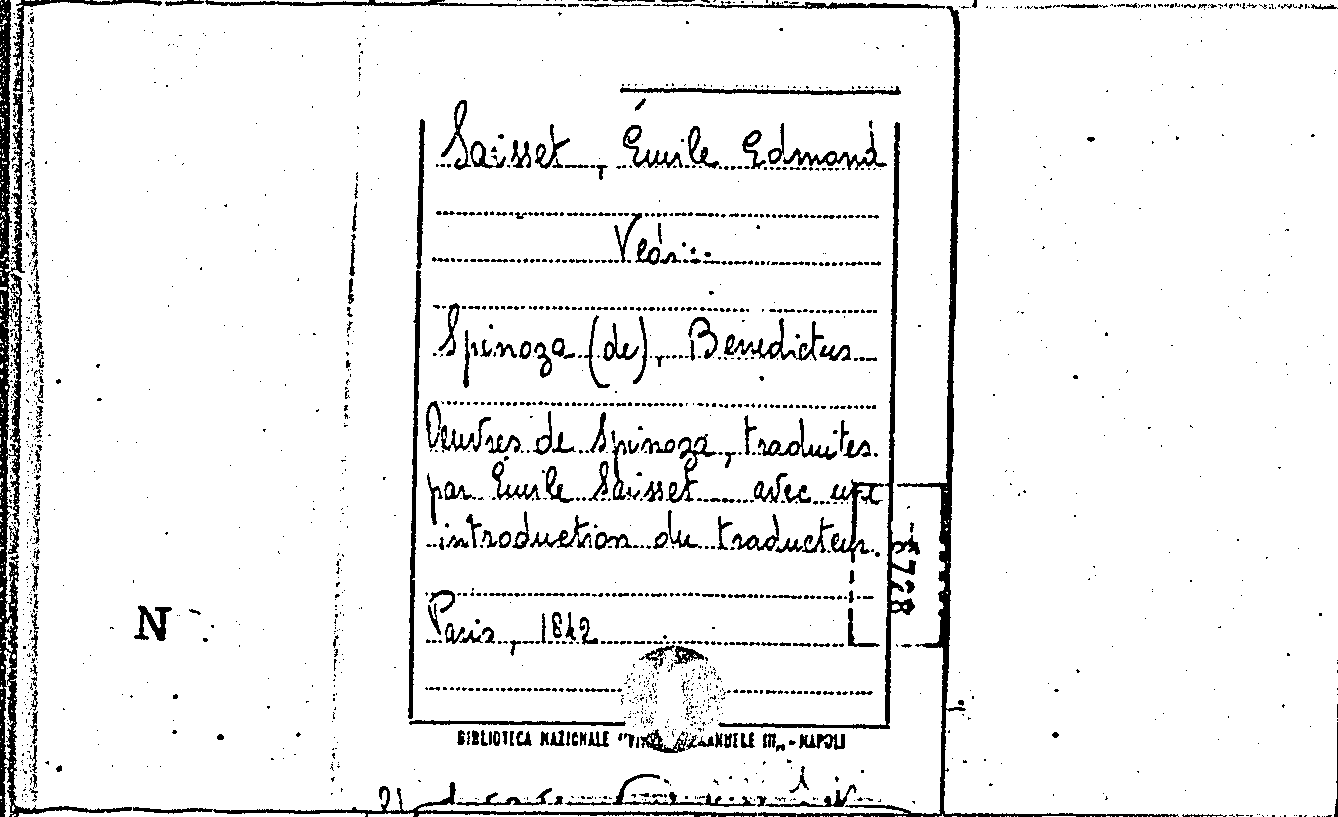 Saisset, Émile Edmond
Vedi:
Spinoza (de), Benedictus
Oeuvres de Spinoza, traduites
par Émile Saisset avec une
introduction du traducteur.
Paris, 1842
728
N
BIBLIOTECA NAZIONALE "VITT. EMANUELE III„ - NAPOLI